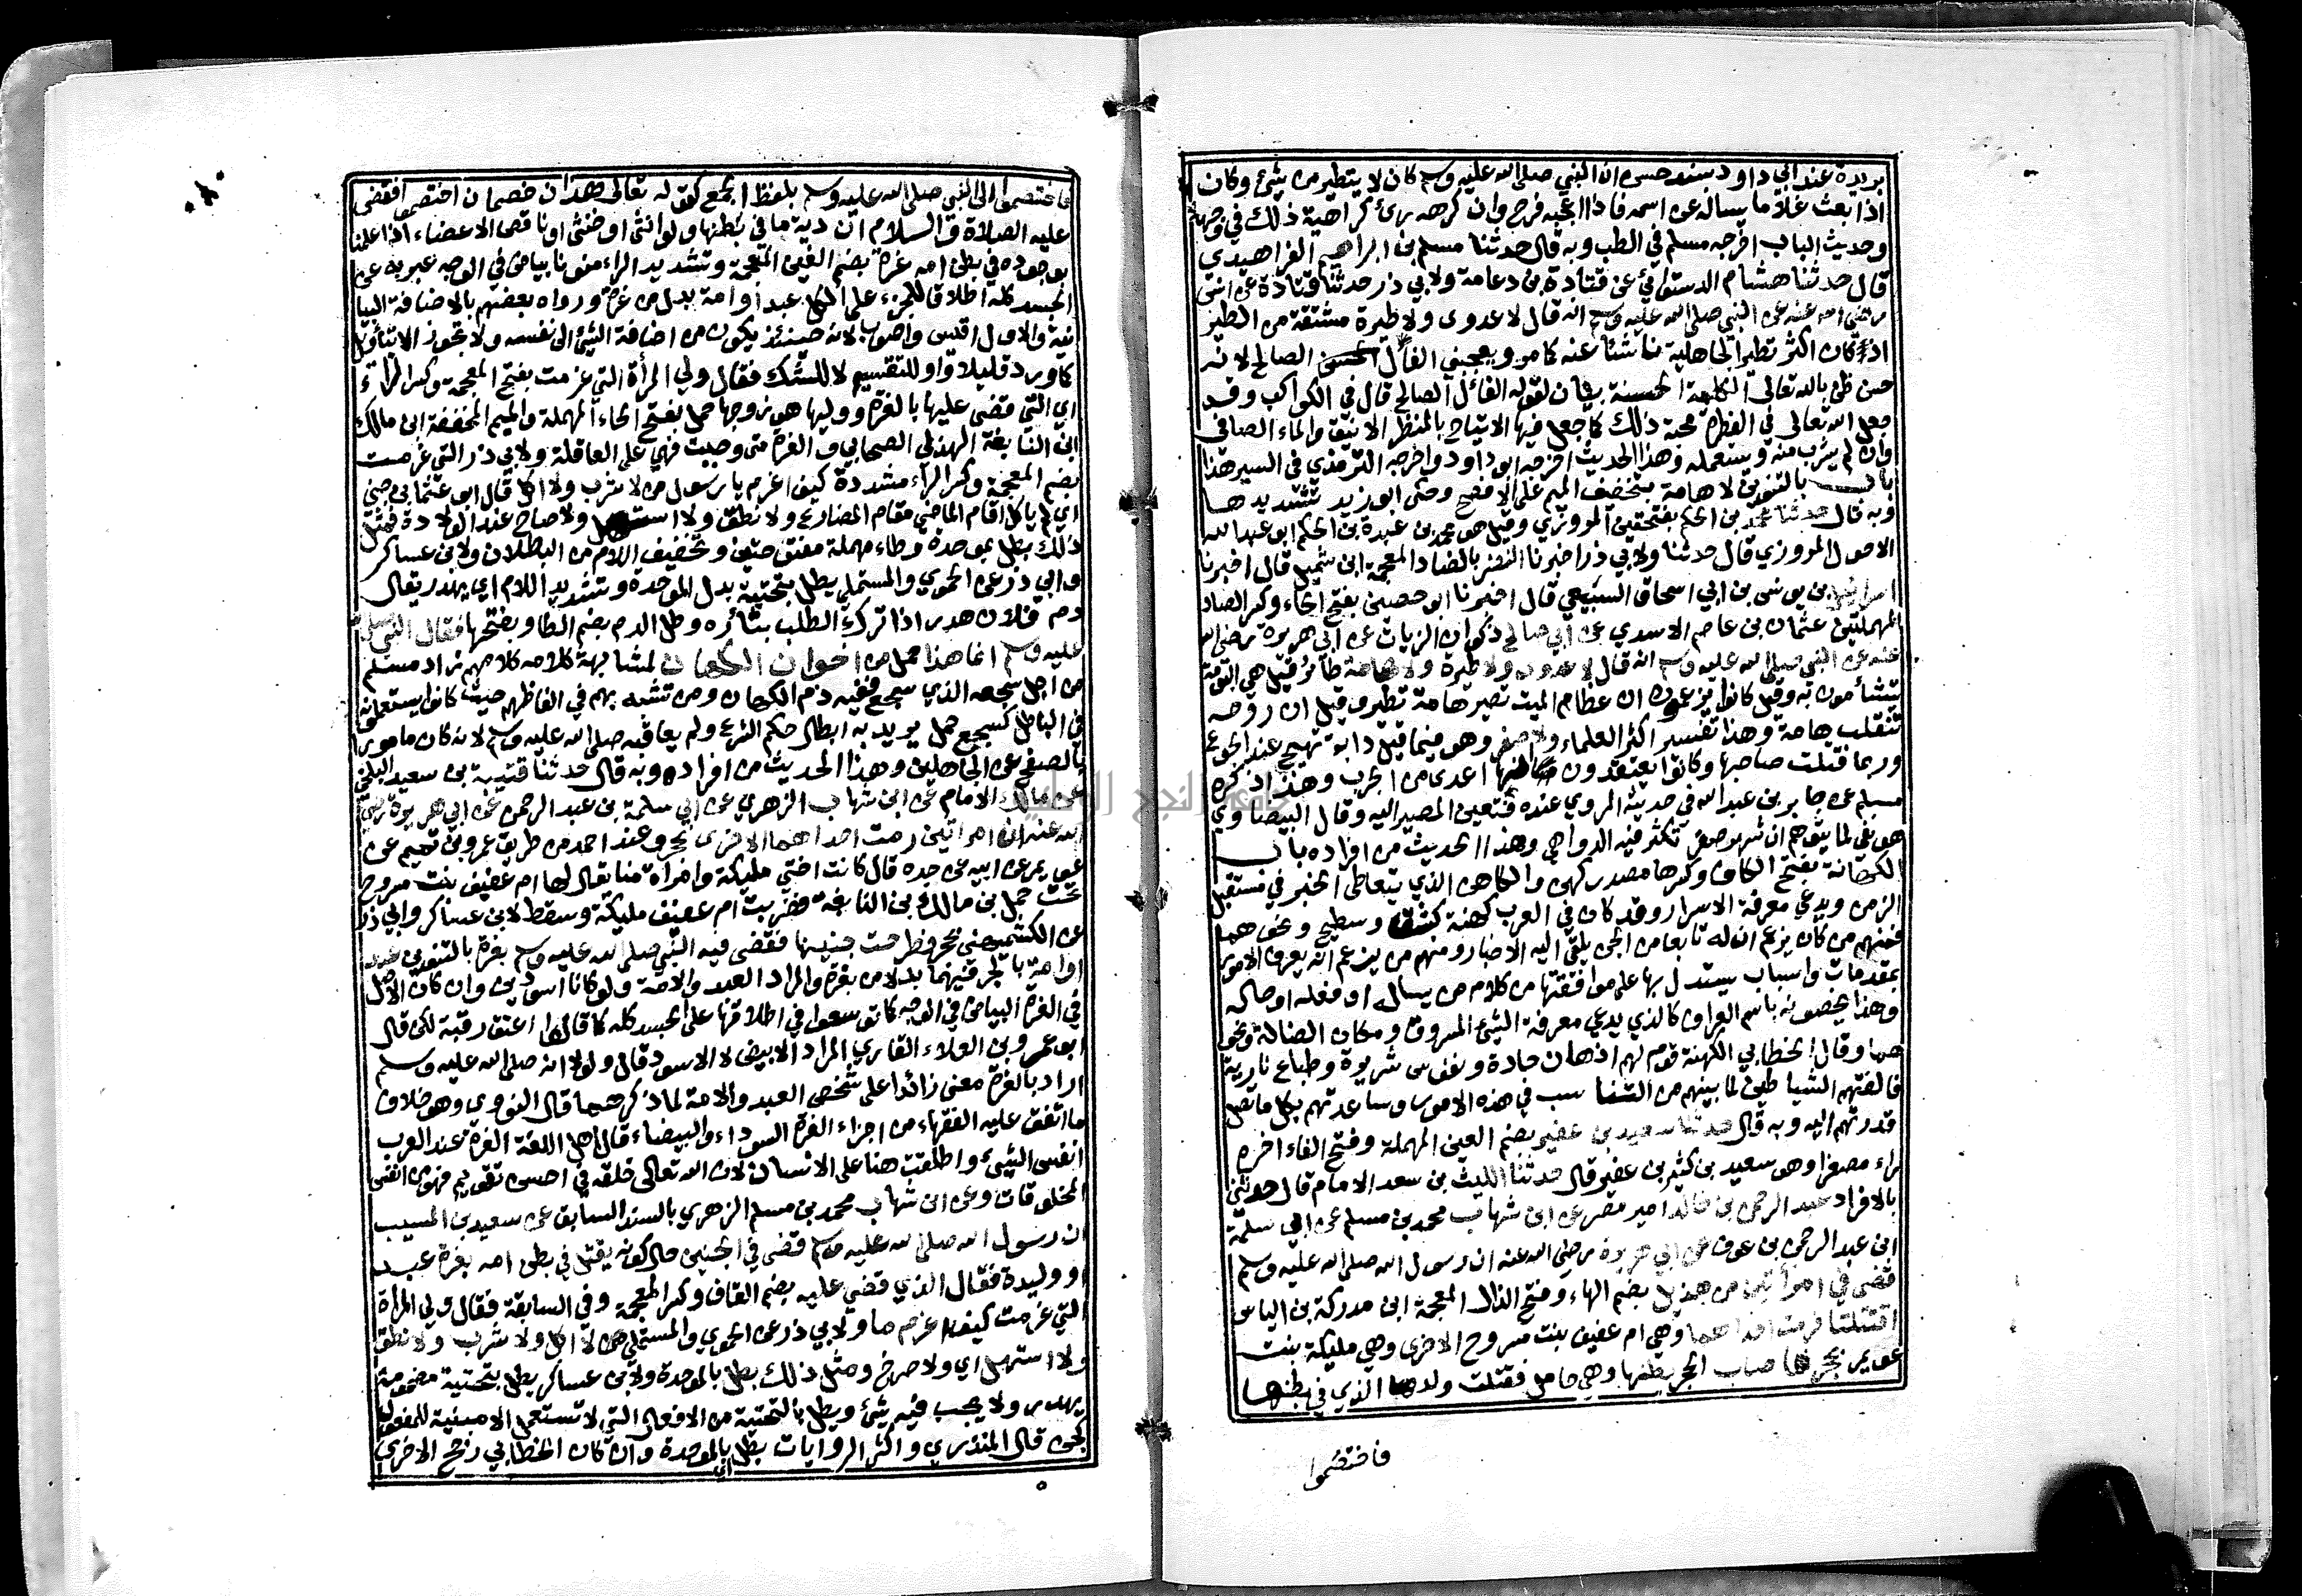 بريدة عند ابي داود بسند حسن ان النبي صلى الله عليه وسلم كان لا يتطير من شيئ وكان
اذا بعث غلاما يساله عن اسمه فاذا اعجبه فرح وان كرهه رئ كراهية ذلك في وجهه
وحديث الباب اخرجه مسلم في الطب وبه قال حدثنا مسلم بن ابراهيم الفراهيدي
قال حدثنا هشام الدستوائي عن قتادة بن دعامة ولابي ذر حدثنا قتادة عن انس
رضي الله عنه عن النبي صلى الله عليه وسلم انه قال لا عدوى ولا طيرة مشتقة من الطير
اذ كان اكثر تطير الجاهلية ناشئا عنه كما مر ويعجبني الفأل الصالح لانه
حسن ظن بالله تعالى الكلمة الحسنة بيان لقوله الفائل الصالح قال في الكواكب وقد
جعل الله تعالى في الفطرة محبة ذلك كما جعل فيها الارتياح بالمنظر الانيق والماء الصافي
وان لم يشرب منه ويستعمله وهذا الحديث اخرجه ابو داود واخرجه الترمذي في السير هذا
باب بالتنوين لا هامة بتخفيف الميم على الافصح وحكى ابو زيد تشديدها
وبه قال حدثنا محمد بن الحكم بفتحتين المروزي وقيل هو محمد بن عبدة بن الحكم ابو عبد الله
الاحول المروزي قال حدثنا ولابي ذر اخبرنا النضر بالضاد المعجمة ابن شميل قال اخبرنا
اسرائيل بن يونس بن ابي اسحاق السبيعي قال اخبرنا ابو حصين بفتح الحاء وكسر الصاد
المهملتين عثمان بن عاصم الاسدي عن ابي صالح ذكوان الزيات عن ابي هريرة رضي الله
عنه عن النبي صلى الله عليه وسلم انه قال لا عدوى ولا طيرة ولا هامة طائر قيل هي البومة
يتشأمون به وقيل كانوا يزعمون ان عظام الميت تصير هامة تطير وقيل ان روحه
تنقلب هامة وهذا تفسير اكثر العلماء ولا صفر وهو فيما قيل دابة تهيج عند الجوع
وربما قتلت صاحبها وكانوا يعتقدون انها اعدى من الجرب وهذا ذكره
مسلم عن جابر بن عبد الله في حديثه المروي عنده فتعين المصير اليه وقال البيضاوي
هو نفي لما يتوهم ان شهر صفر تكثر فيه الدواهي وهذا الحديث من افراده باب
الكهانة بفتح الكاف وكسرها مصدر كهن والكاهن الذي يتعاطى الخبر في مستقبل
الزمن ويدعي معرفة الاسرار وقد كان في العرب كهنة كشق وسطيح ونحوهما
فمنهم من كان يزعم ان له تابعا من الجن يلقي اليه الاخبار ومنهم من يزعم انه يعرف الامور
بمقدمات واسباب يستدل بها على موافقتها من كلام من يسأله او فعله او حاله
وهذا يخصونه باسم العراف كالذي يدعي معرفة الشئ المسروق ومكان الضالة ونحو
هما وقال الخطابي الكهنة قوم لهم اذهان حادة ونفوس شريرة وطباع نارية
فالفتهم الشياطين لما بينهم من التناسب في هذه الامور وساعدتهم بكل ما تصل
قدرتهم اليه وبه قال حدثنا سعيد بن عفير بضم العين المهملة وفتح الفاء اخره
راء مصغرا وهو سعيد بن كثير بن عفير قال حدثنا الليث بن سعد الامام قال حدثني
بالافراد عبد الرحمن بن خالد امير مصر عن ابن شهاب محمد بن مسلم عن ابي سلمة
ابن عبد الرحمن بن عوف عن ابي هريرة رضي الله عنه ان رسول الله صلى الله عليه وسلم
قضى في امرأتين من هذيل بضم الهاء وفتح الذال المعجمة ابن مدركة بن الياس
اقتتلتا فرمت احداهما وهي ام عفيف بنت مسروح الاخرى وهي مليكة بنت
عويمر بحجر فاصاب الحجر بطنها وهي حامل فقتلت ولدها الذي في بطنها
فاختصموا
فاختصموا الى النبي صلى الله عليه وسلم بلفظ الجمع كقوله تعالى هذان خصمان اختصموا فقضى
عليه الصلاة والسلام ان دية ما في بطنها ولو انثى او خنثى او ناقص الاعضاء اذا علمنا
بوجوده في بطن امه غرة بضم الغين المعجمة وتشديد الراء منونا بياض في الوجه عبر به عن
الجسد كله اطلاقا للجزء على الكل عبد او امة بدل من غرة ورواه بعضهم بالاضافة البيا
نية والاول اقيس واصوب لانه حينئذ يكون من اضافة الشئ الى نفسه ولا تجوز الا بتأويل
كما ورد قليلا واو للتقسيم لا للشك فقال ولي المرأة التي غرمت بفتح المعجمة وكسر الراء
اي التي قضى عليها بالغرة ووليها هو زوجها حمل بفتح الحاء المهملة والميم المخففة ابن مالك
ابن النابغة الهذلي الصحابي والغرة متى وجبت فهي على العاقلة ولابي ذر التي غرمت
بضم المعجمة وكسر الراء مشددة كيف اغرم يا رسول من لا شرب ولا اكل قال ابو عثمان بن جني
اي لم ياكل اقام الماضي مقام المضارع ولا نطق ولا استهل ولا صاح عند الولادة فمثل
ذلك بطل بموحدة وطاء مهملة مفتوحتين وتخفيف اللام من البطلان ولابن عساكر
وابي ذر عن الحموي والمستملي يطل بتحتية بدل الموحدة وتشديد اللام اي يهدر يقال
دم فلان هدر اذا ترك الطلب بثأره وطل الدم بضم الطا وبفتحها فقال النبي صلى الله
عليه وسلم انما هذا حمل من اخوان الكهان لمشابهة كلامه كلامهم زاد مسلم
من اجل سجعه الذي سجع ففيه ذم الكهان ومن تشبه بهم في الفاظهم حيث كانوا يستعملونه
في الباطل كسجع حمل يريد به ابطال حكم الشرع ولم يعاقبه صلى الله عليه وسلم لانه كان مامورا
بالصفح عن الجاهلين وهذا الحديث من افراده وبه قال حدثنا قتيبة بن سعيد البلخي
عن مالك الامام عن ابن شهاب الزهري عن ابي سلمة بن عبد الرحمن عن ابي هريرة رضي
الله عنه ان امراتين رمت احداهما الاخرى بحجر وعند احمد من طريق عمرو بن تميم عن
عويمر عن ابيه عن جده قال كانت اختي مليكة وامرأة منا يقال لها ام عفيف بنت مسروح
تحت حمل بن مالك بن النابغة فضربت ام عفيف مليكة وسقط لابن عساكر وابي ذر
عن الكشميهني بحجر فطرحت جنينها فقضى فيه النبي صلى الله عليه وسلم بغرة بالتنوين عبد
او امة بالجر فيهما بدلا من بغرة والمراد العبد والامة ولو كانا اسودين وان كان الاصل
في الغرة البياض في الوجه كما توسعوا في اطلاقها على الجسد كله كما قالوا اعتق رقبة لكن قال
ابو عمرو بن العلاء القاري المراد الابيض لا الاسود قال ولولا انه صلى الله عليه وسلم
اراد بالغرة معنى زائدا على شخص العبد والامة لما ذكرهما قال النووي وهو خلاف
ما اتفق عليه الفقهاء من اجزاء الغرة السوداء والبيضاء قال اهل اللغة الغرة عند العرب
انفس الشيئ واطلقت هنا على الانسان لان الله تعالى خلقه في احسن تقويم فهو من انفس
المخلوقات وعن ابن شهاب محمد بن مسلم الزهري بالسند السابق عن سعيد بن المسيب
ان رسول الله صلى الله عليه وسلم قضى في الجنين حال كونه يقتل في بطن امه بغرة عبد
او وليدة فقال الذي قضي عليه بضم القاف وكسر المعجمة وفي السابقة فقال ولي المرأة
التي غرمت كيف اغرم ما ولابي ذر عن الحموي والمستملي من لا اكل ولا شرب ولا نطق
ولا استهل اي ولا صرخ ومثل ذلك بطل بالموحدة ولابن عساكر يطل بتحتية مضمومة
يهدر ولا يجب فيه شيئ ويطل بالتحتية من الافعال التي لا تستعمل الا مبنية للمفعول
كجن قال المنذري واكثر الروايات بطل بالموحدة وان كان الخطابي رجح الاخرى